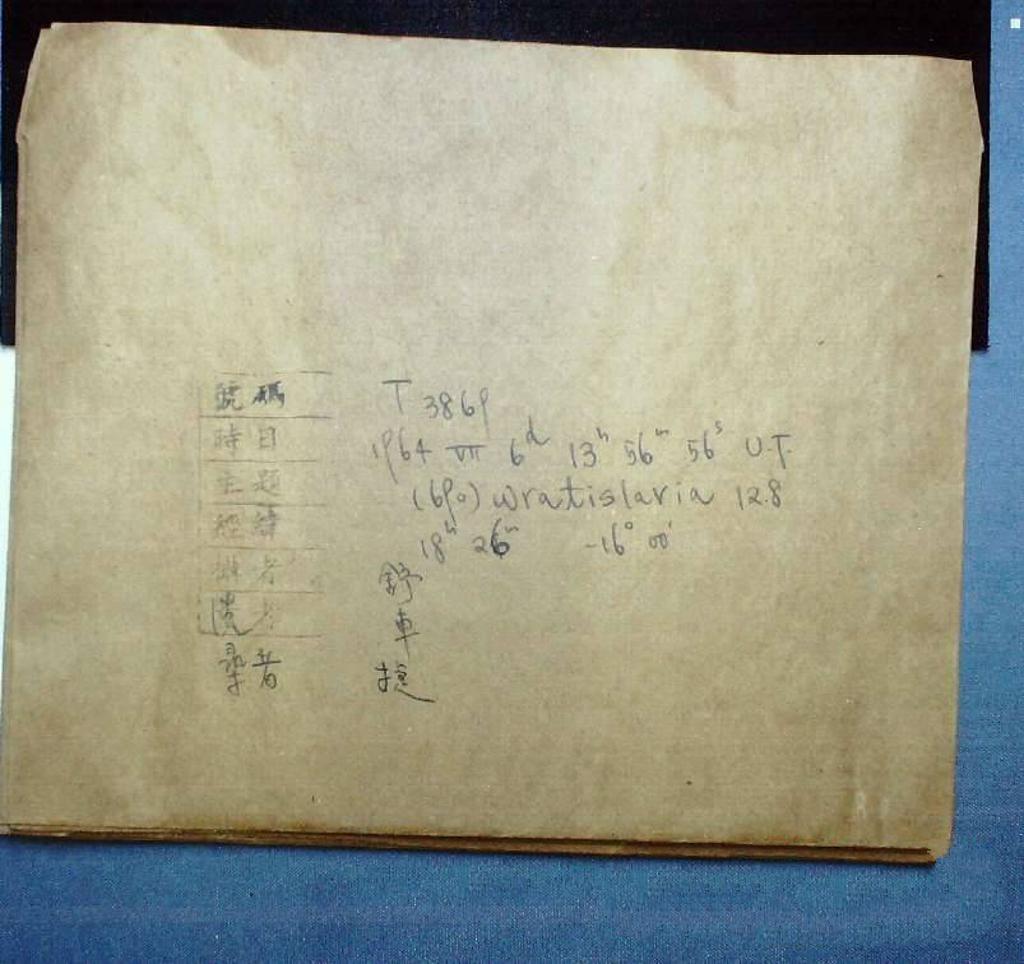 號碼 T 3869
時日 1964 VII 6ᵈ 13ʰ 56ᵐ 56ˢ U.T.
主題 (690) Wratislavia 12.8
經緯 18ʰ 26ᵐ -16° 00'
者 舒
者 車
者 捷